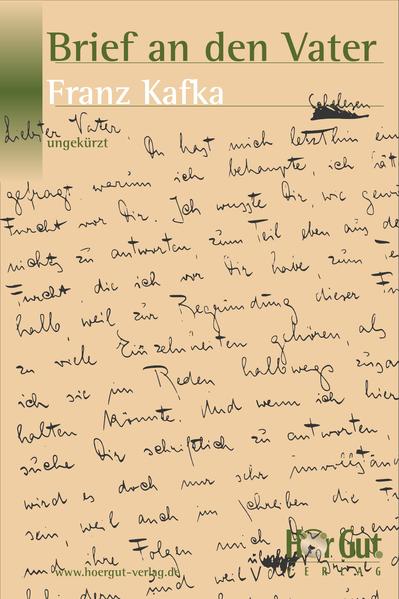 Brief an den Vater
Franz Kafka
Schelesen
Liebster Vater,
ungekürzt
Du hast mich letzthin ein
gefragt, warum ich behaupte, ich hät
Furcht vor Dir. Ich wusste Dir, wie gewö
nichts zu antworten, zum Teil eben aus de
Furcht, die ich vor Dir habe, zum Te
halb, weil zur Begründung dieser Fu
zu viele Einzelnheiten gehören, als
ich sie im Reden halbwegs zusam
halten könnte. Und wenn ich hier
suche Dir schriftlich zu antworten,
wird es doch nur sehr unvollstän
sein, weil auch im Schreiben die Fu
und ihre Folgen mich Dir gegenü
HörGut!
VERLAG
www.hoergut-verlag.de
und weil